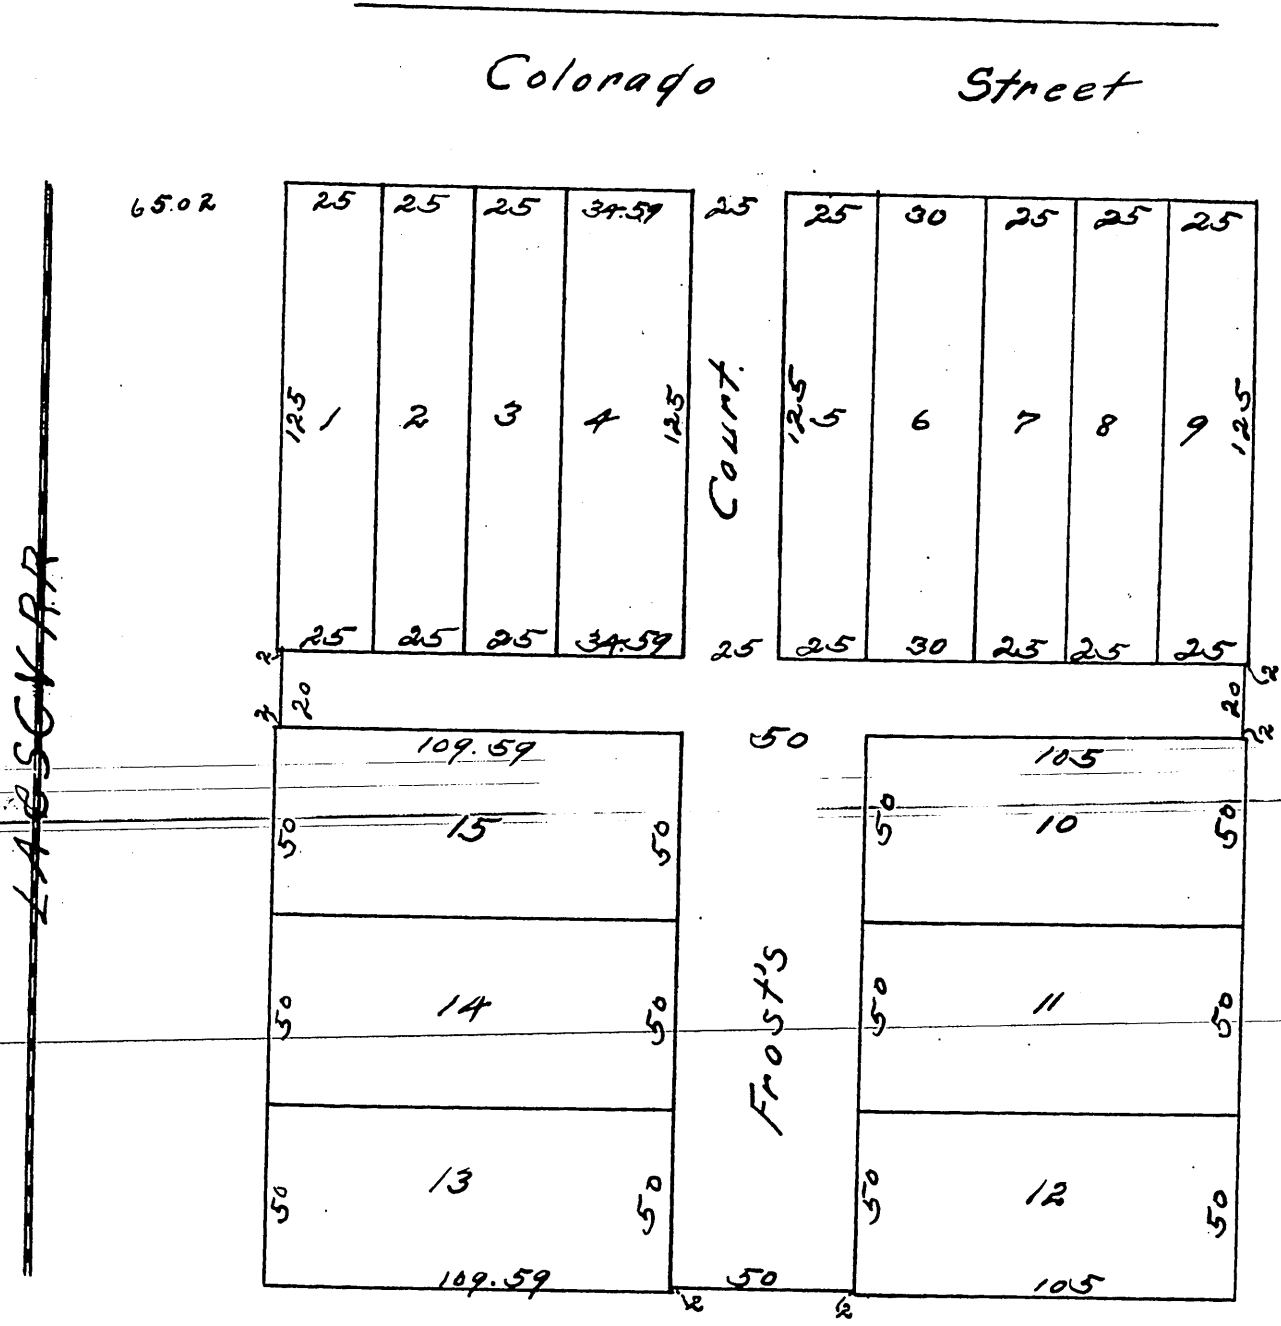 Colorado Street
65.02 25 25 25 34.59 25 25 30 25 25 25
125 1 2 3 4 125 Court. 125 5 6 7 8 9 125
25 25 25 34.59 25 25 30 25 25 25
2 2
20 20
2 2
109.59 50 105
50 15 50 50 10 50
50 14 50 50 11 50
Frost's
50 13 50 50 12 50
109.59 50 105
2 2
LA & SGV R.R